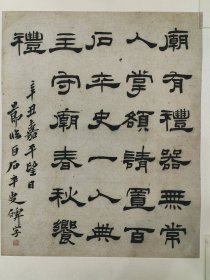 廟有禮器無常
人掌領請置百
石卒史一人典
主守廟春秋饗
禮
辛丑嘉平望日
節臨百石卒史碑字